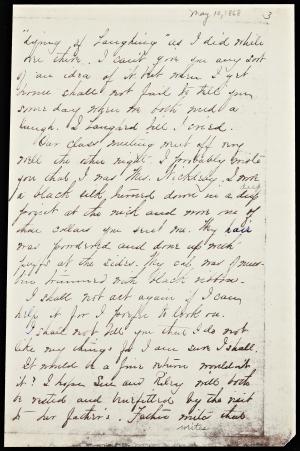 May 10, 1868
3
"dying of laughing" as I did while
I can't give you any sort
of an idea of it but when I get
home shall not fail to tell you
some day when we both need a
laugh. I laughed till I cried.
Our class meeting went off very
well the other night. I probably wrote
you that I was Mrs. I wore
a black silk turned down in a deep
point at the neck and wore one of
those collars you sent me. My hair
was powdered and done up with
puffs at the sides. My cap was of mus-
lin trimmed with black ribbon.
I shall not act again if I can
help it for I prefer to look on.
I shall not tell you that I do not
like my things for I am sure I shall.
It would be a fine return wouldn't
it? I hope Sue and will both
be rested and benefitted by the visit
to her father's. Father writes that
writes